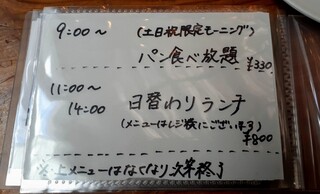 9:00〜 (土日祝限定モーニング)
パン食べ放題
¥330
11:00〜
14:00 日替わりランチ
(メニューはレジ横にございます)
¥800
※上メニューはなくなり次第終了